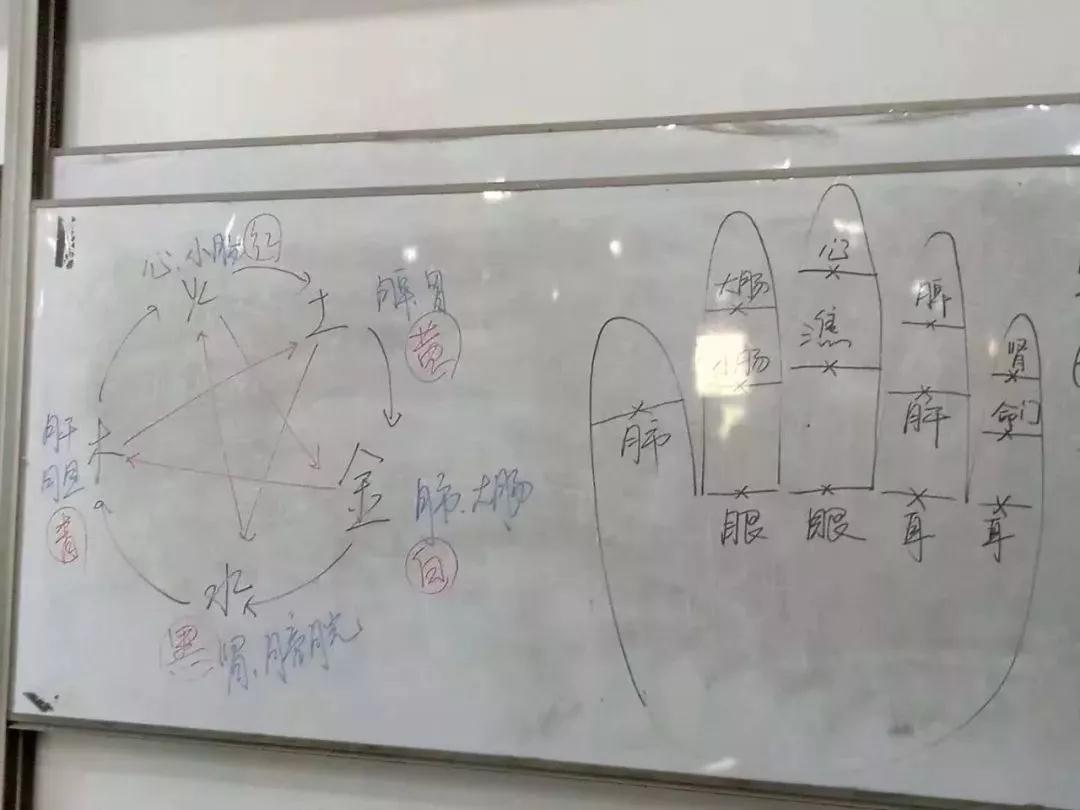 心、小肠 红
火
土
脾胃
黄
木
肝
胆
青
金
肺、大肠
白
水
黑 肾、膀胱
大肠
小肠
心
焦
脾
肝
肾
命门
肺
眼
眼
耳
耳